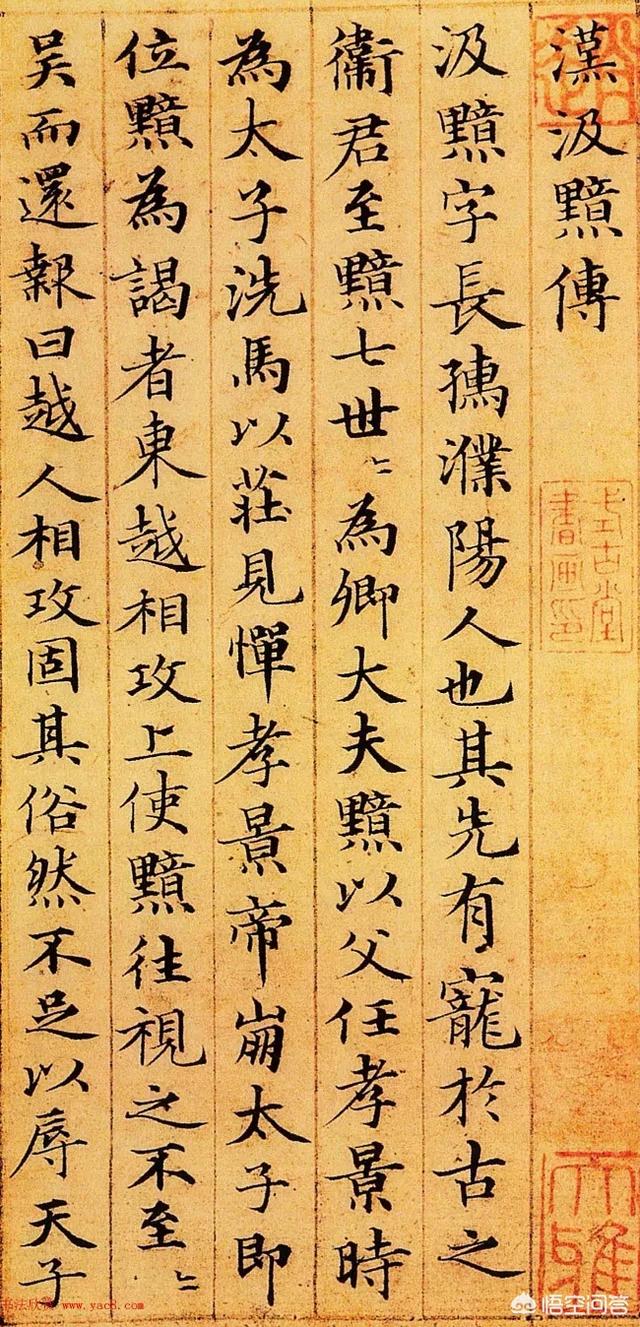 漢汲黯傳
汲黯字長孺濮陽人也其先有寵於古之
衞君至黯七世〻為卿大夫黯以父任孝景時
為太子洗馬以莊見憚孝景帝崩太子即
位黯為謁者東越相攻上使黯往視之不至〻
吳而還報曰越人相攻固其俗然不足以辱天子
書畫印
大雅
www.yac8.com
悟空问答